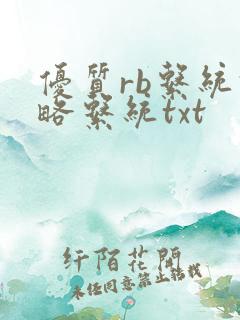 優質rb繫統
略繫統txt
纤陌花開
未经同意禁止转载